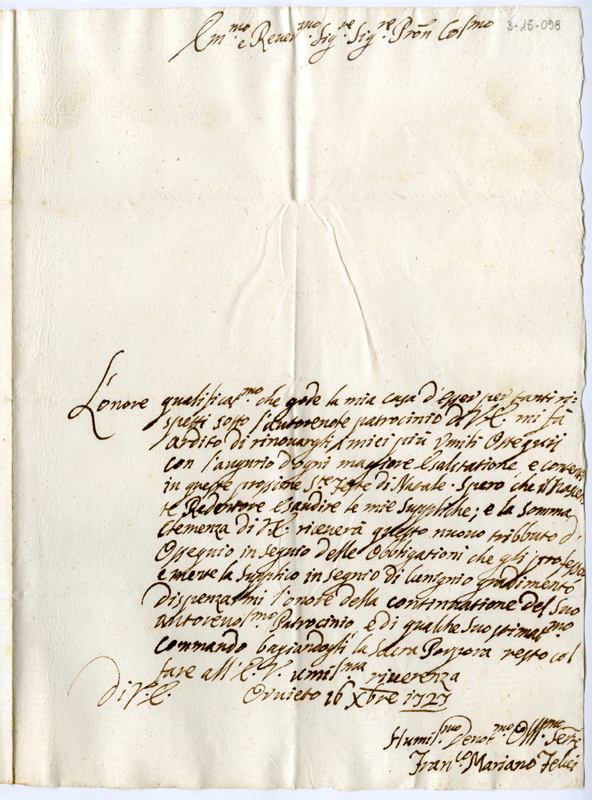 3-15-098
Em.mo e Rever.mo Sig.re Sig.re Pron Col.mo
L'onore qualificat.mo che gode la mia casa d'esser per tanti ri-
spetti sotto l'autorevole patrocinio di V.E. mi fà
ardito di rinovargli i miei più Umili Ossequij
con l'augurio d'ogni maggiore Esaltatione, e contento
in queste prossime S.te Feste di Natale. Spero che il nascen
te Redentore Esaudirà le mie Suppliche; e la somma
Clemenza di V.E. riceverà questo nuovo tribbuto d'
Ossequio in segno delle Obbligationi che gli professo
e mentre la Supplico in segnio di benignio gradimento
dispenzarmi l'onore della continuatione del suo
autorevol.mo Patrocinio e di qualche suo stimat.mo
commando baciandogli la Sacra Porpora resto col
fare all'E.V. umil.ma riverenza
Di V.E. Orvieto 16 Xbre 1727
Humil.mo Devot.mo Obbl.mo Ser.re
Fran.co Mariano Felici